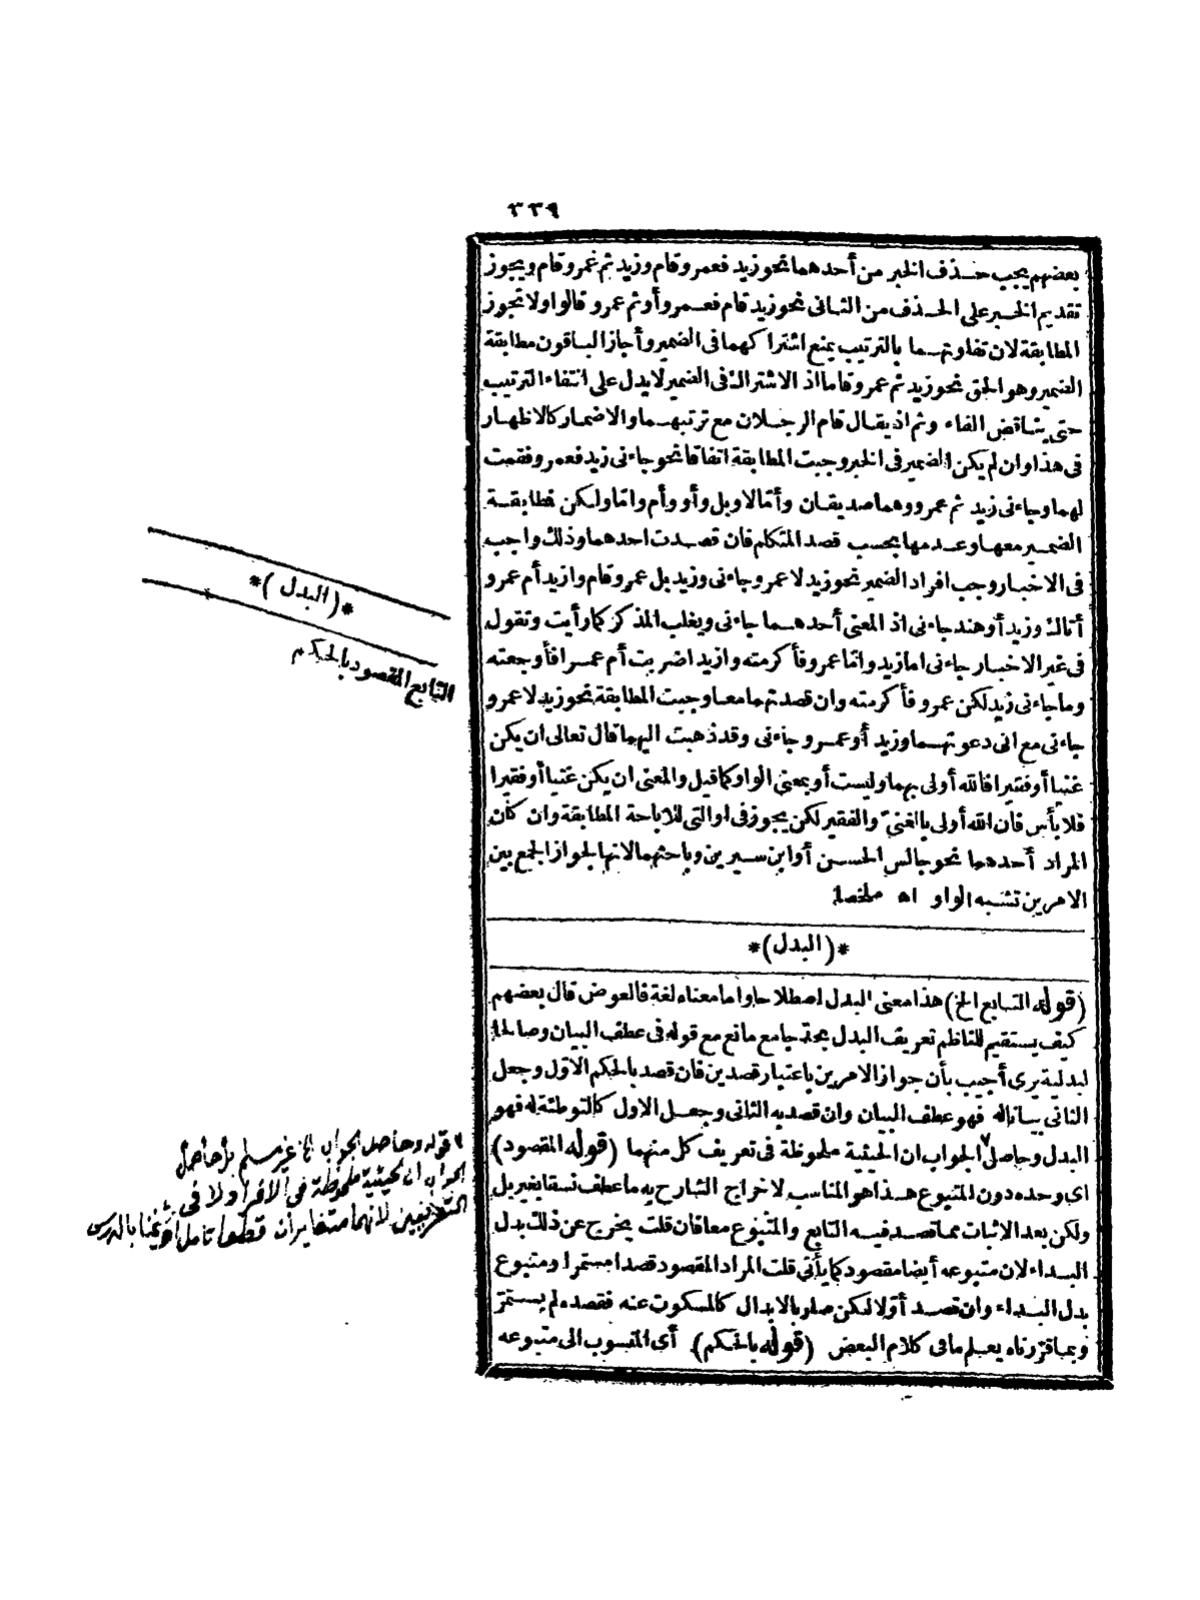 ٣٣٩
بعضهم يجب حذف الخبر من أحدهما نحو زيد فعمرو قام وزيد ثم عمرو قام ويجوز
تقديم الخبر على الحذف من الثانى نحو زيد قام فعمرو أو ثم عمرو قالوا ولا تجوز
المطابقة لان تفاوتهما بالترتيب يمنع اشتراكهما فى الضمير وأجاز الباقون مطابقة
الضمير وهو الحق نحو زيد ثم عمرو قاما اذ الاشتراك فى الضمير لا يدل على انتفاء الترتيب
حتى يناقض الفاء وثم اذ يقال قام الرجلان مع ترتبهما والاضمار كالاظهار
فى هذا وان لم يكن الضمير فى الخبر وجبت المطابقة اتفاقا نحو جاءنى زيد فعمرو فقمت
لهما وجاءنى زيد ثم عمرو وهما صديقان وأما لا وبل وأو وأم واما ولكن فطابقة
الضمير معها وعدمها بحسب قصد المتكلم فان قصدت احدهما وذلك واجب
فى الاخبار وجب افراد الضمير نحو زيد لا عمرو جاءنى وزيد بل عمرو قام وازيد أم عمرو
أتاك وزيد أو هند جاءنى اذ المعنى أحدهما جاءنى ويغلب المذكر كما رأيت وتقول
فى غير الاخبار جاءنى اما زيد واما عمرو فأكرمته وازيدا ضربت أم عمرا فأوجعته
وما جاءنى زيد لكن عمرو فأكرمته وان قصدتهما معا وجبت المطابقة نحو زيد لا عمرو
جاءنى مع انى دعوتهما وزيد أو عمرو جاءنى وقد ذهبت اليهما قال تعالى ان يكن
غنيا أو فقيرا فالله أولى بهما وليست أو بمعنى الواو كما قيل والمعنى ان يكن غنيا أو فقيرا
فلا بأس فان الله أولى بالغنى والفقير لكن يجوز فى او التى للاباحة المطابقة وان كان
المراد أحدهما نحو جالس الحسن أو ابن سيرين وباحثهما لانها لجواز الجمع بين
الامرين تشبه الواو اه ملخصا
*(البدل)*
(قوله التابع الخ) هذا معنى البدل اصطلاحا واما معناه لغة فالعوض قال بعضهم
كيف يستقيم للناظم تعريف البدل بحد جامع مانع مع قوله فى عطف البيان وصالحا
لبدلية يرى أجيب بأن جواز الامرين باعتبار قصدين فان قصد بالحكم الاول وجعل
الثانى بيانا له فهو عطف البيان وان قصد به الثانى وجعل الاول كالتوطئة له فهو
البدل وحاصل ٩ الجواب ان الحيثية ملحوظة فى تعريف كل منهما (قوله المقصود)
اى وحده دون المتبوع هذا هو المناسب لاخراج الشارح به ما عطف نسقا بغير بل
ولكن بعد الاثبات مما قصد فيه التابع والمتبوع معا فان قلت يخرج عن ذلك بدل
البداء لان متبوعه أيضا مقصود كما يأتى قلت المراد المقصود قصدا مستمرا ومتبوع
بدل البداء وان قصد أولا لكن صار بالابدال كالمسكوت عنه فقصده لم يستمر
وبما قررناه يعلم ما فى كلام البعض (قوله بالحكم) أى المنسوب الى متبوعه
*(البدل)*
التابع المقصود بالحكم
٩ قوله وحاصل الجواب الخ غير مسلم بل حاصل
الجواب ان الحيثية ملحوظة فى الافراد لا فى
التعريفين لانهما متغايران قطعا تأمل بالدرس